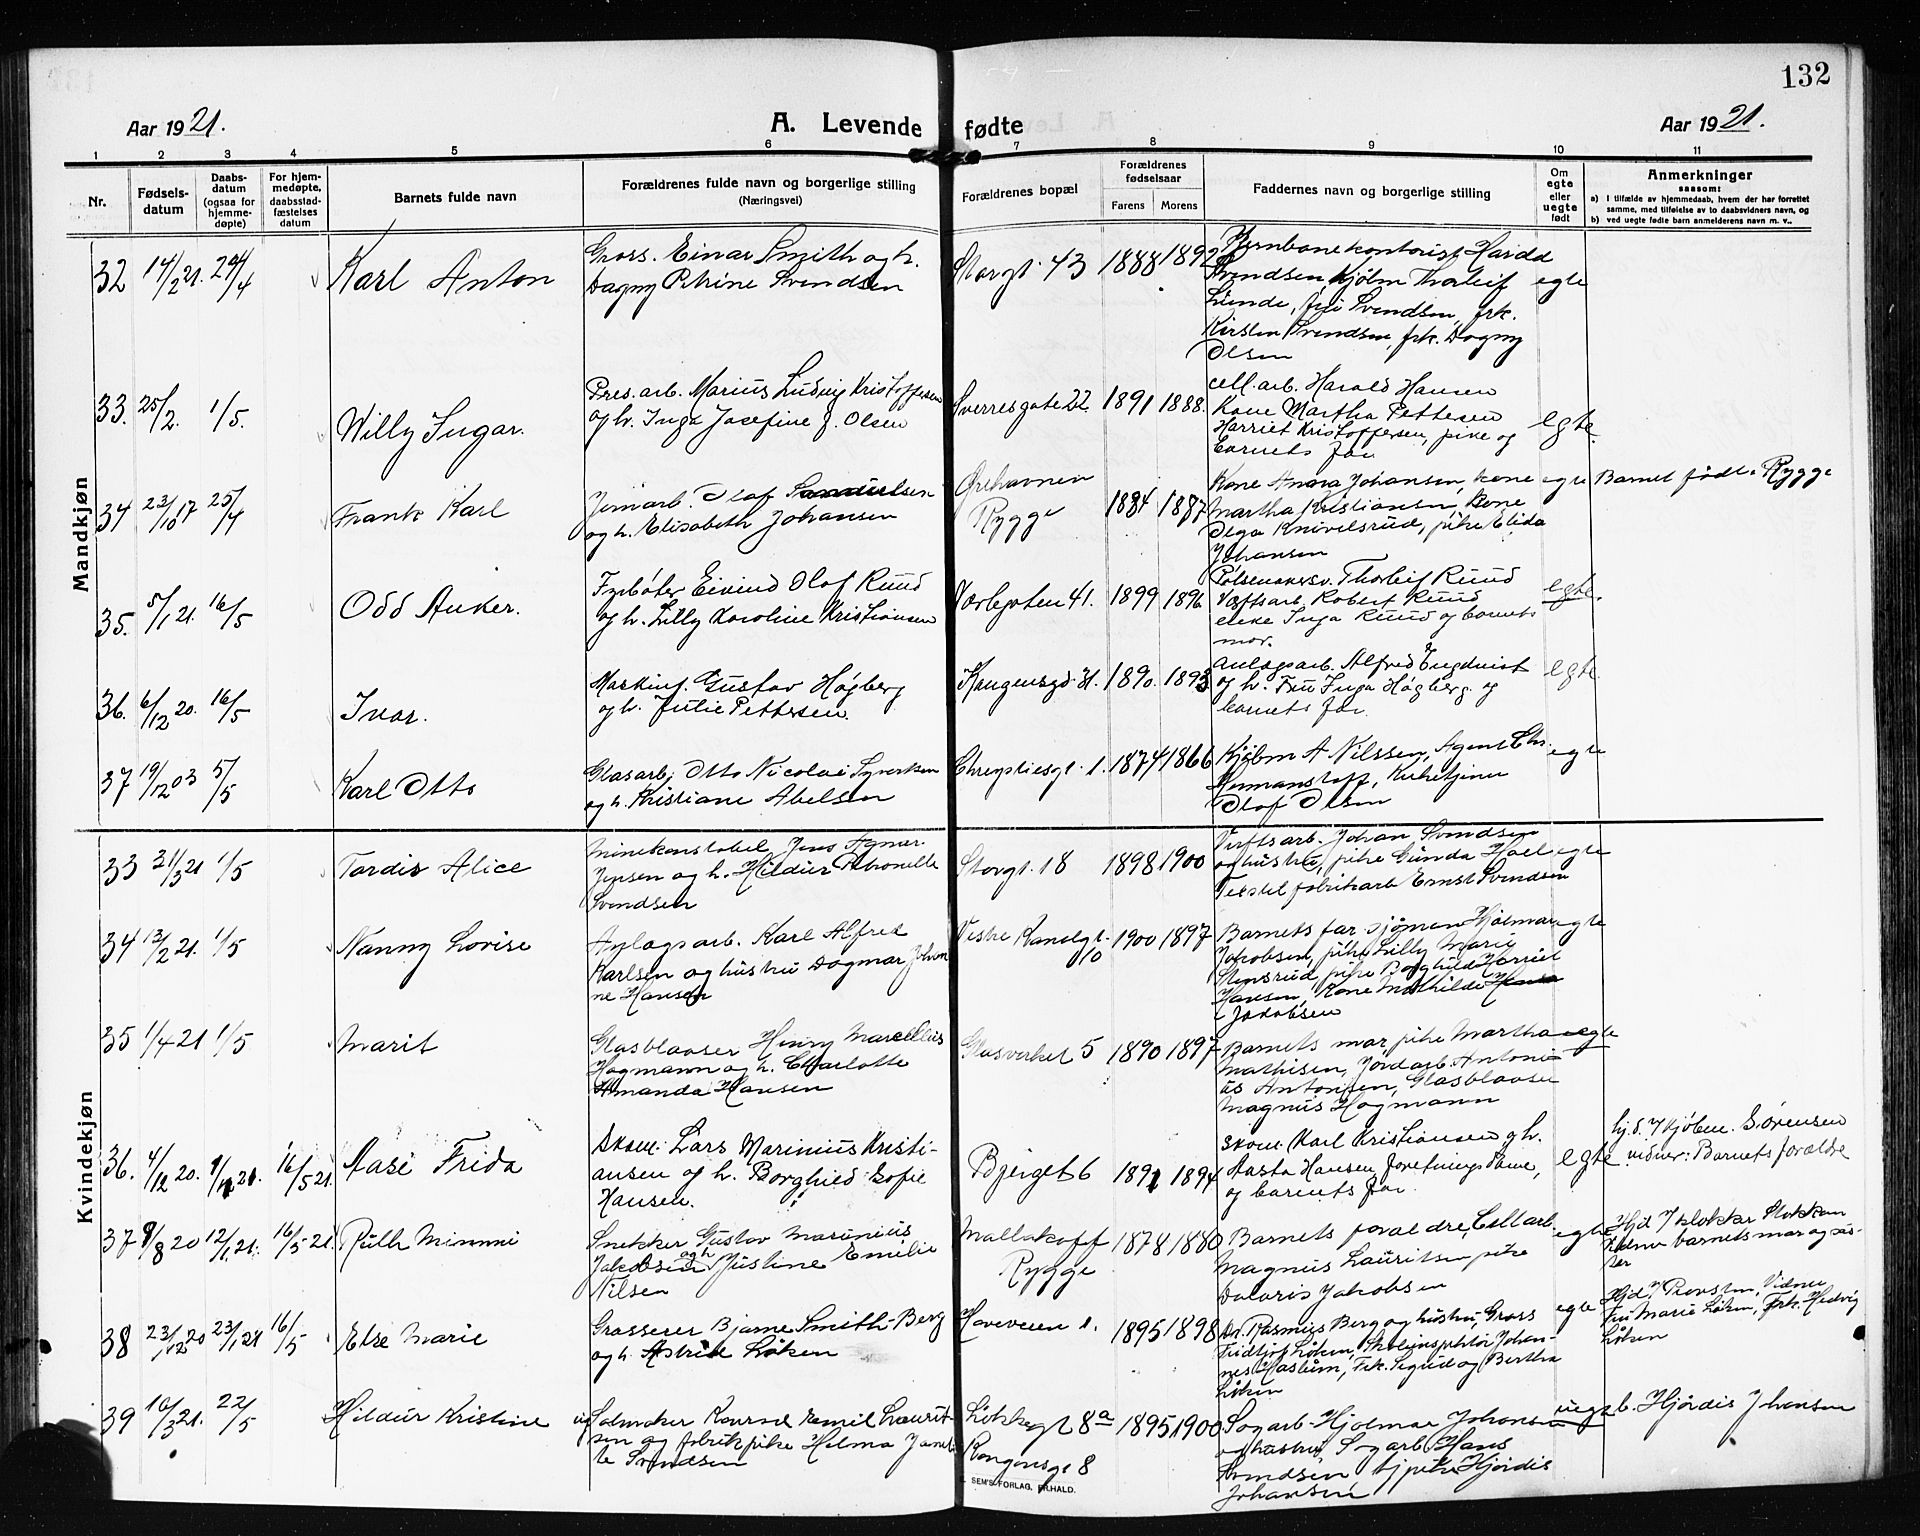 132
Aar 1921.
A. Levende fødte
Aar 1921.
1 2 3 4 5 6 7 8 9 10 11
Nr.
Fødsels-
datum
Daabs-
datum
(ogsaa for
hjemme-
døpte)
For hjem-
medøpte,
daabsstad-
fæstelses
datum
Barnets fulde navn
Forældrenes fulde navn og borgerlige stilling
(Næringsvei)
Forældrenes bopæl
Forældrenes
fødselsaar
Farens Morens
Faddernes navn og borgerlige stilling
Om
egte
eller
uegte
født
Anmerkninger
saasom:
a) I tilfælde av hjemmedaab, hvem der har forrettet
samme, med tilføielse av to daabsvidners navn, og
b) ved uegte fødte barn anmelderens navn m. v..
Mandkjøn
32 14/2 21. 24/4 Karl Anton
Gross. Einar Smith og h.
Dagny Petrine Svendsen
Storgt. 43 1888 1892
Jernbanekontorist Harald
Svendsen, Kjøbm Thorleif
Lunde, fru Svendsen, frk.
Kirsten Svendsen, frk. Dagny
Olsen
egte
33. 25/2. 1/5. Willy Ingar.
Pres. arb. Marius Ludvig Kristoffersen
og h. Inga Josefine J. Olsen
Sverresgate 22. 1891 1888.
cell. arb. Harald Hansen
Kone Martha Pettersen
Harriet Kristoffersen, pike og
barnets far
egte.
34 23/10 17 25/4 Frank Karl
Jernarb. Olaf Samuelsen
og h. Elisabeth Johansen
Ørehavnen
Rygge
1884 1887
Kone Anna Johansen, kone
Martha Kristiansen, Kone
Olga Knivelsrud, pike Elida
Johansen
egte Barnet født i Rygge
35. 5/1 21. 16/5 Odd Anker.
Fyrbøter Eivind Olaf Ruud
og h. Lilly Karoline Kristiansen
Varlegaten 41. 1899 1896
Pølsemakersv. Thorleif Ruud
Værftsarb. Robert Ruud
enke Inga Ruud og barnets
mor.
egte.
36. 6/12 20. 16/5 Ivar.
Maskinf. Gustav Høgberg
og h. Julie Pettersen.
1890. 1893
Anlægsarb. Alfred Engqvist
og h. Fru Inga Høgberg. og
barnets far
egte.
37 19/12 03 5/5 Karl Otto
Glasarb. Otto Nicolai Syvertsen
og h. Kristiane Abelsen
1. 1874 1866
Kjøbm A Nilssen, Agent Chr.
Hermanstoff, Kirketjener
Olaf Olsen
egte
Kvindekjøn
33 21/3 21 1/5 Tordis Alice
Minekonstabel Jens Agnar
Jensen og h. Hildur Petronelle
Svendsen
Storgt. 18 1898 1900
Verftsarb. Johan Svendsen
og hustru, pike Gunda Hoel
Tekstilfabrikarb Ernst Svendsen
egte
34 13/2 21. 1/5 Nanny Lovise
Anlægsarb. Karl Alfred
Karlsen og hustru Dagmar Johan
ne Hansen
Vestre Kanalgt.
10
1900 1897
Barnets far, sjøman Hjalmar
Jakobsen, pike Lilly Marie
Stensrud, pike Borghild Harriet
Hansen, Kone Mathilde
Jakobsen
egte
35 1/4 21 1/5 Marit
Glasblaaser Henry Marcellius
Hagmann og h. Charlotte
Amanda Hansen
Glasverket 5 1890 1897
Barnets mor, pike Martha
Mathisen, Jordarb. Antoni-
us Antonisen, Glasblaaser
Magnus Hagmann
egte
36. 4/12 20. 21. 16/5 21. Aase Frida
Skom. Lars Marinius Kristi-
ansen og h. Borghild Sofie
Hansen.
Bjerget 6 1891 1894
Skom. Karl Kristiansen og h.
Aasta Hansen, forretningsdame,
og barnets far.
egte
hj. d. 7 Kjøbm. Sørensen
vidner: Barnets forældre
37 9/8 20 12/1 21. 16/5 21. Ruth Mimmi
Snekker Gustav Marinius
Jakobsen og h Justine Emilie
Nilsen
Mallakoff
Rygge
1878 1880
Barnets forældre, Cell arb.
Magnus Lauritsen, pike
Dolaris Jakobsen
egte
Hjd 7 klokker Slokkan
Vidner barnets mor og søs-
ter
38 23/12 20 23/1 21 16/5 Else Marie
Grosserer Bjarne Smith-Berg
og h. Astrid Løken
Haveveien 1. 1895 1898
Dr. Rasmus Berg og hustru, Gross
Fridtjof Løken, Skoleinspektør Johan-
nes Hastum, Frk. Sigrid og Bertha
Løken
egte
Hjd. 7 Provsten, Vidner
Fru Marie Løken, Frk. Hedvig
Løken
39 16/3 21. 22/5 Hildur Kristine
Salmaker Konrad Emil Laurit-
sen og fabrikpike Helma Janet-
te Svendsen
Løkkegt 8a
Kongensgt 8
1895 1900
Sagarb. Hjalmar Johansen
og hustru, Sagarb. Hans
Svendsen, pike Hjørdis
Johansen
uegte
b. Hjørdis Johansen
SEM'S FORLAG, FR.HALD.